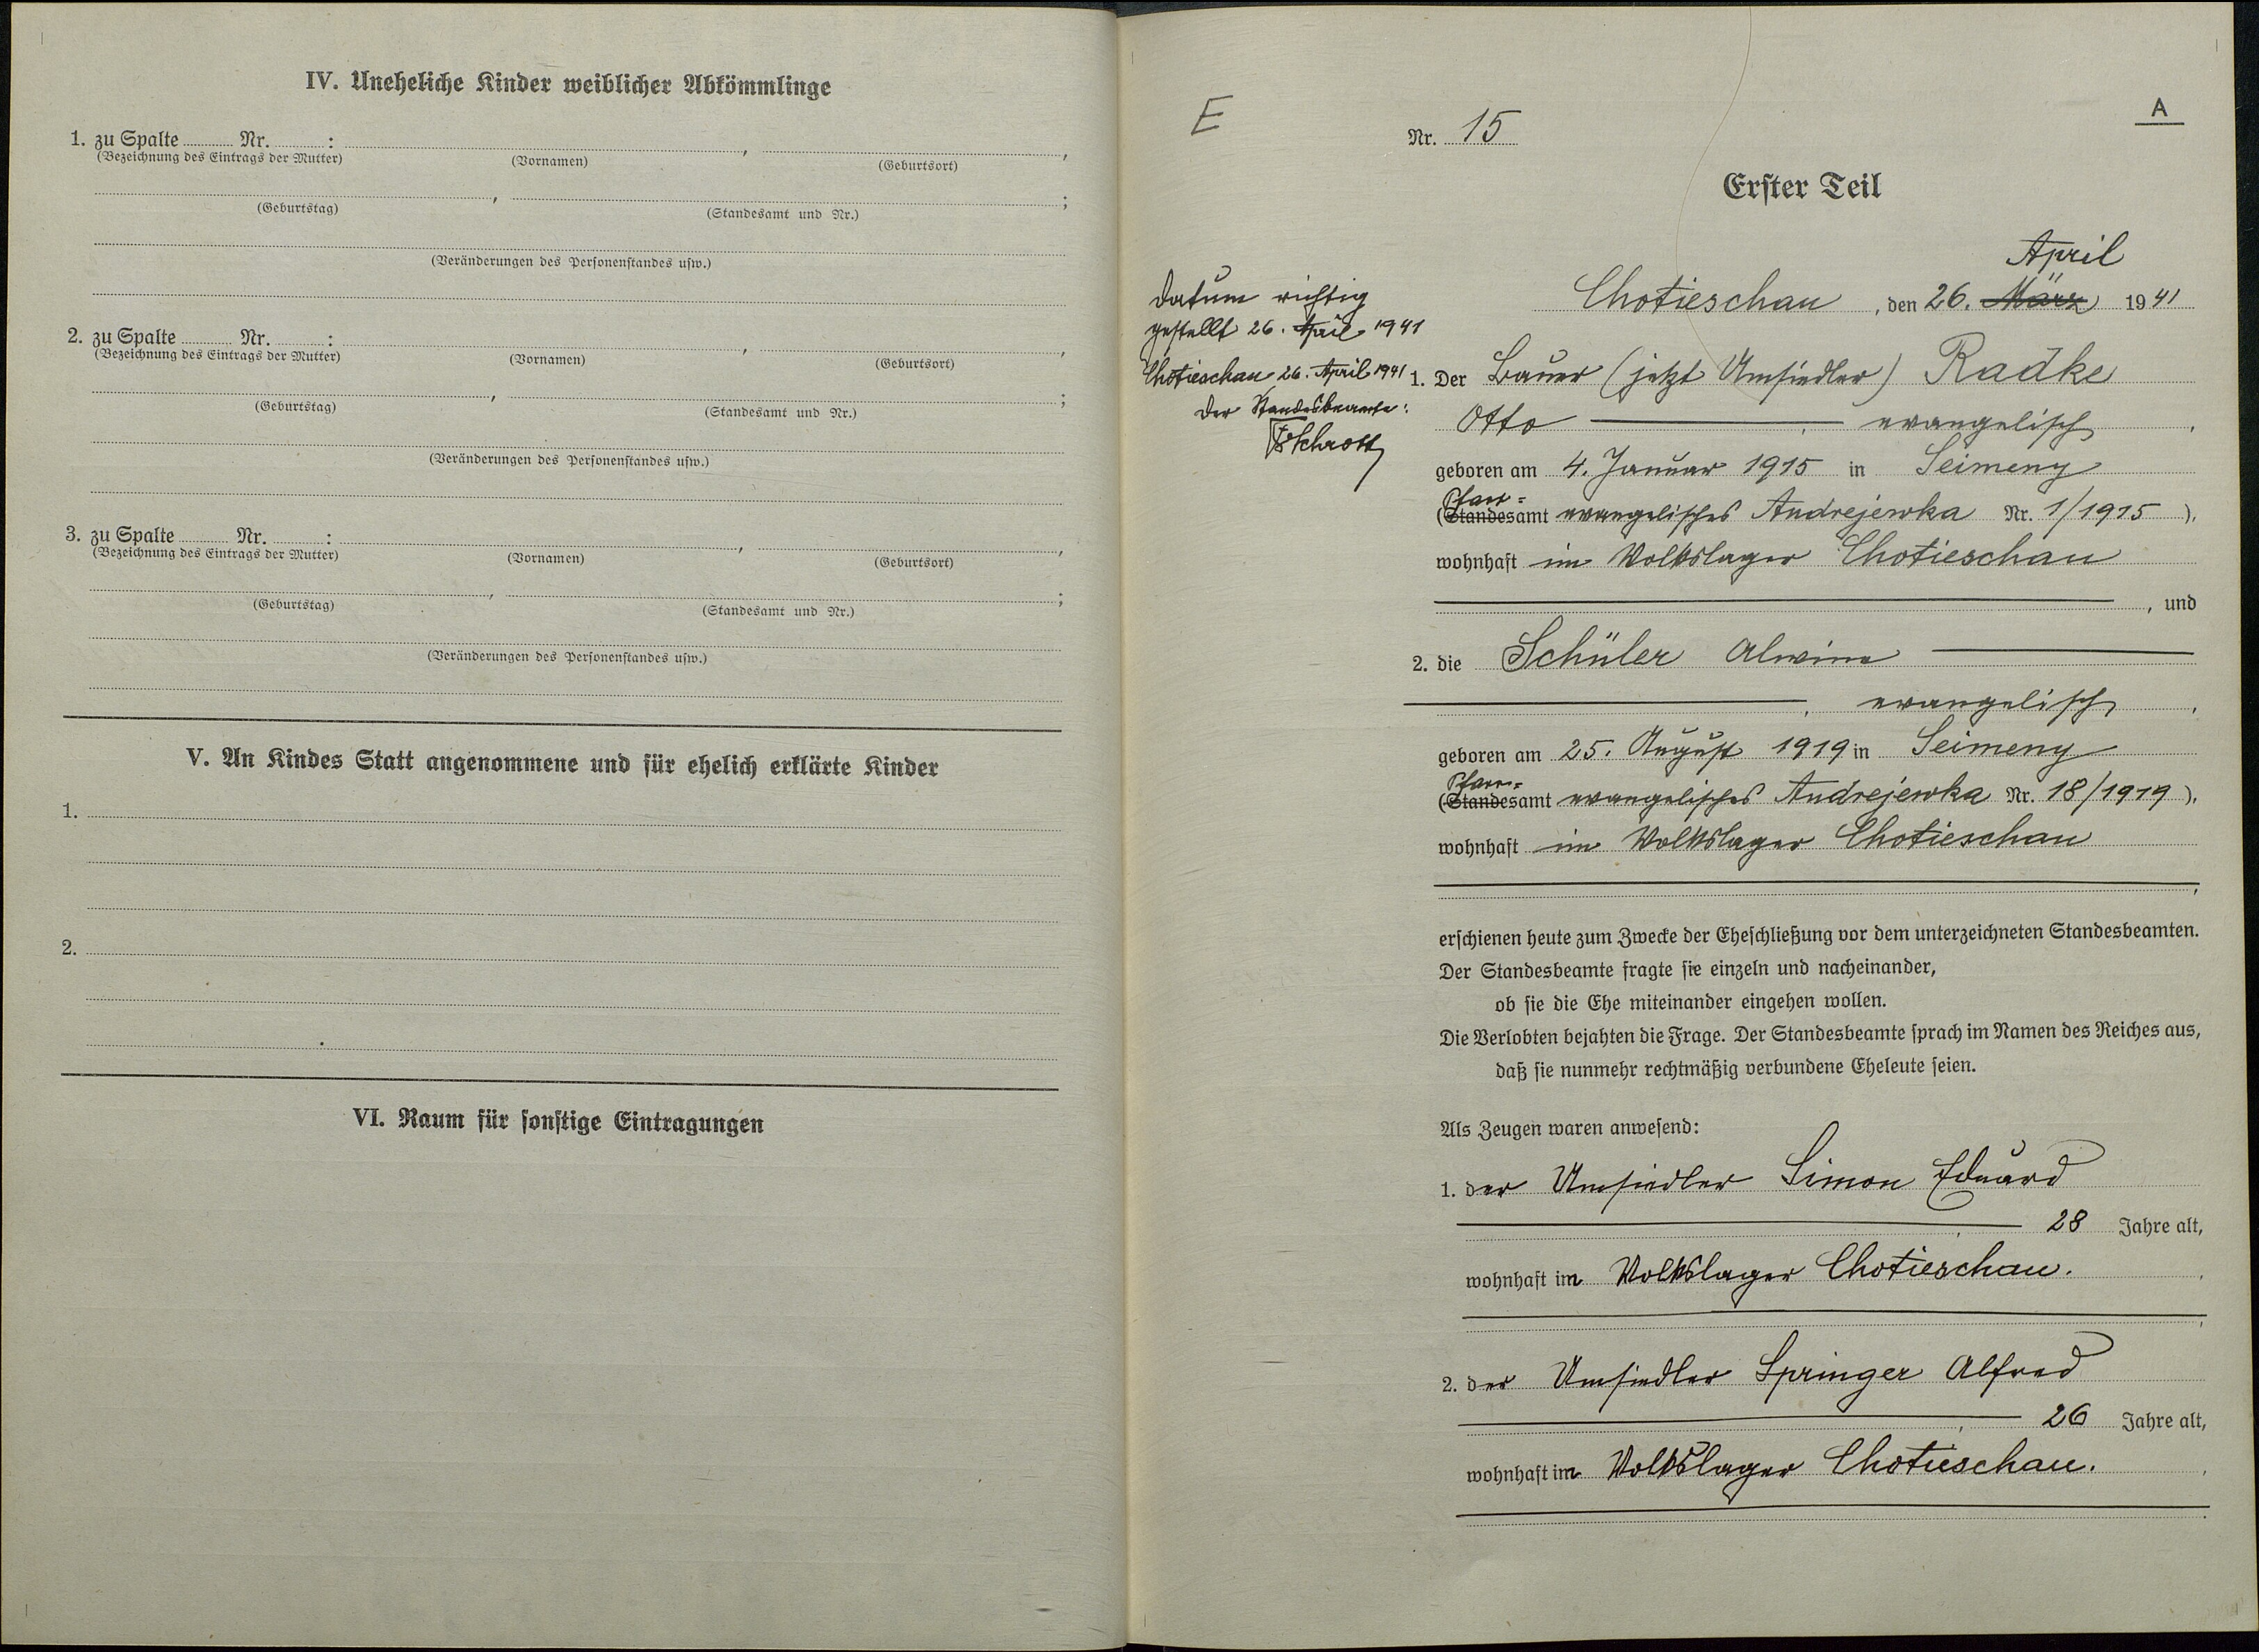 IV. Uneheliche Kinder weiblicher Abkömmlinge
1. zu Spalte Nr. : , ,
(Bezeichnung des Eintrags der Mutter) (Vornamen) (Geburtsort)
, ;
(Geburtstag) (Standesamt und Nr.)
(Veränderungen des Personenstandes usw.)
2. zu Spalte Nr. : , ,
(Bezeichnung des Eintrags der Mutter) (Vornamen) (Geburtsort)
, ;
(Geburtstag) (Standesamt und Nr.)
(Veränderungen des Personenstandes usw.)
3. zu Spalte Nr. : , ,
(Bezeichnung des Eintrags der Mutter) (Vornamen) (Geburtsort)
, ;
(Geburtstag) (Standesamt und Nr.)
(Veränderungen des Personenstandes usw.)
V. An Kindes Statt angenommene und für ehelich erklärte Kinder
1.
2.
VI. Raum für sonstige Eintragungen
E
A
Nr. 15
Erster Teil
April
Chotieschau, den 26. März 1941
Datum richtig
gestellt 26. April 1941
Chotieschau 26. April 1941
Der Standesbeamte:
1. Der Bauer (jetzt Umsiedler) Radke
Otto, evangelisch,
geboren am 4. Januar 1915 in Seimeny
Pfarr-
(Standesamt evangelisches Andrejewka Nr. 1/1915),
wohnhaft im Volkslager Chotieschau
, und
2. die Schüler Alwine
, evangelisch,
geboren am 25. August 1919 in Seimeny
Pfarr-
(Standesamt evangelisches Andrejewka Nr. 18/1919),
wohnhaft im Volkslager Chotieschau
,
erschienen heute zum Zwecke der Eheschließung vor dem unterzeichneten Standesbeamten.
Der Standesbeamte fragte sie einzeln und nacheinander,
ob sie die Ehe miteinander eingehen wollen.
Die Verlobten bejahten die Frage. Der Standesbeamte sprach im Namen des Reiches aus,
daß sie nunmehr rechtmäßig verbundene Eheleute seien.
Als Zeugen waren anwesend:
1. der Umsiedler Simon Eduard
, 28 Jahre alt,
wohnhaft im Volkslager Chotieschau.
2. der Umsiedler Springer Alfred
, 26 Jahre alt,
wohnhaft im Volkslager Chotieschau.